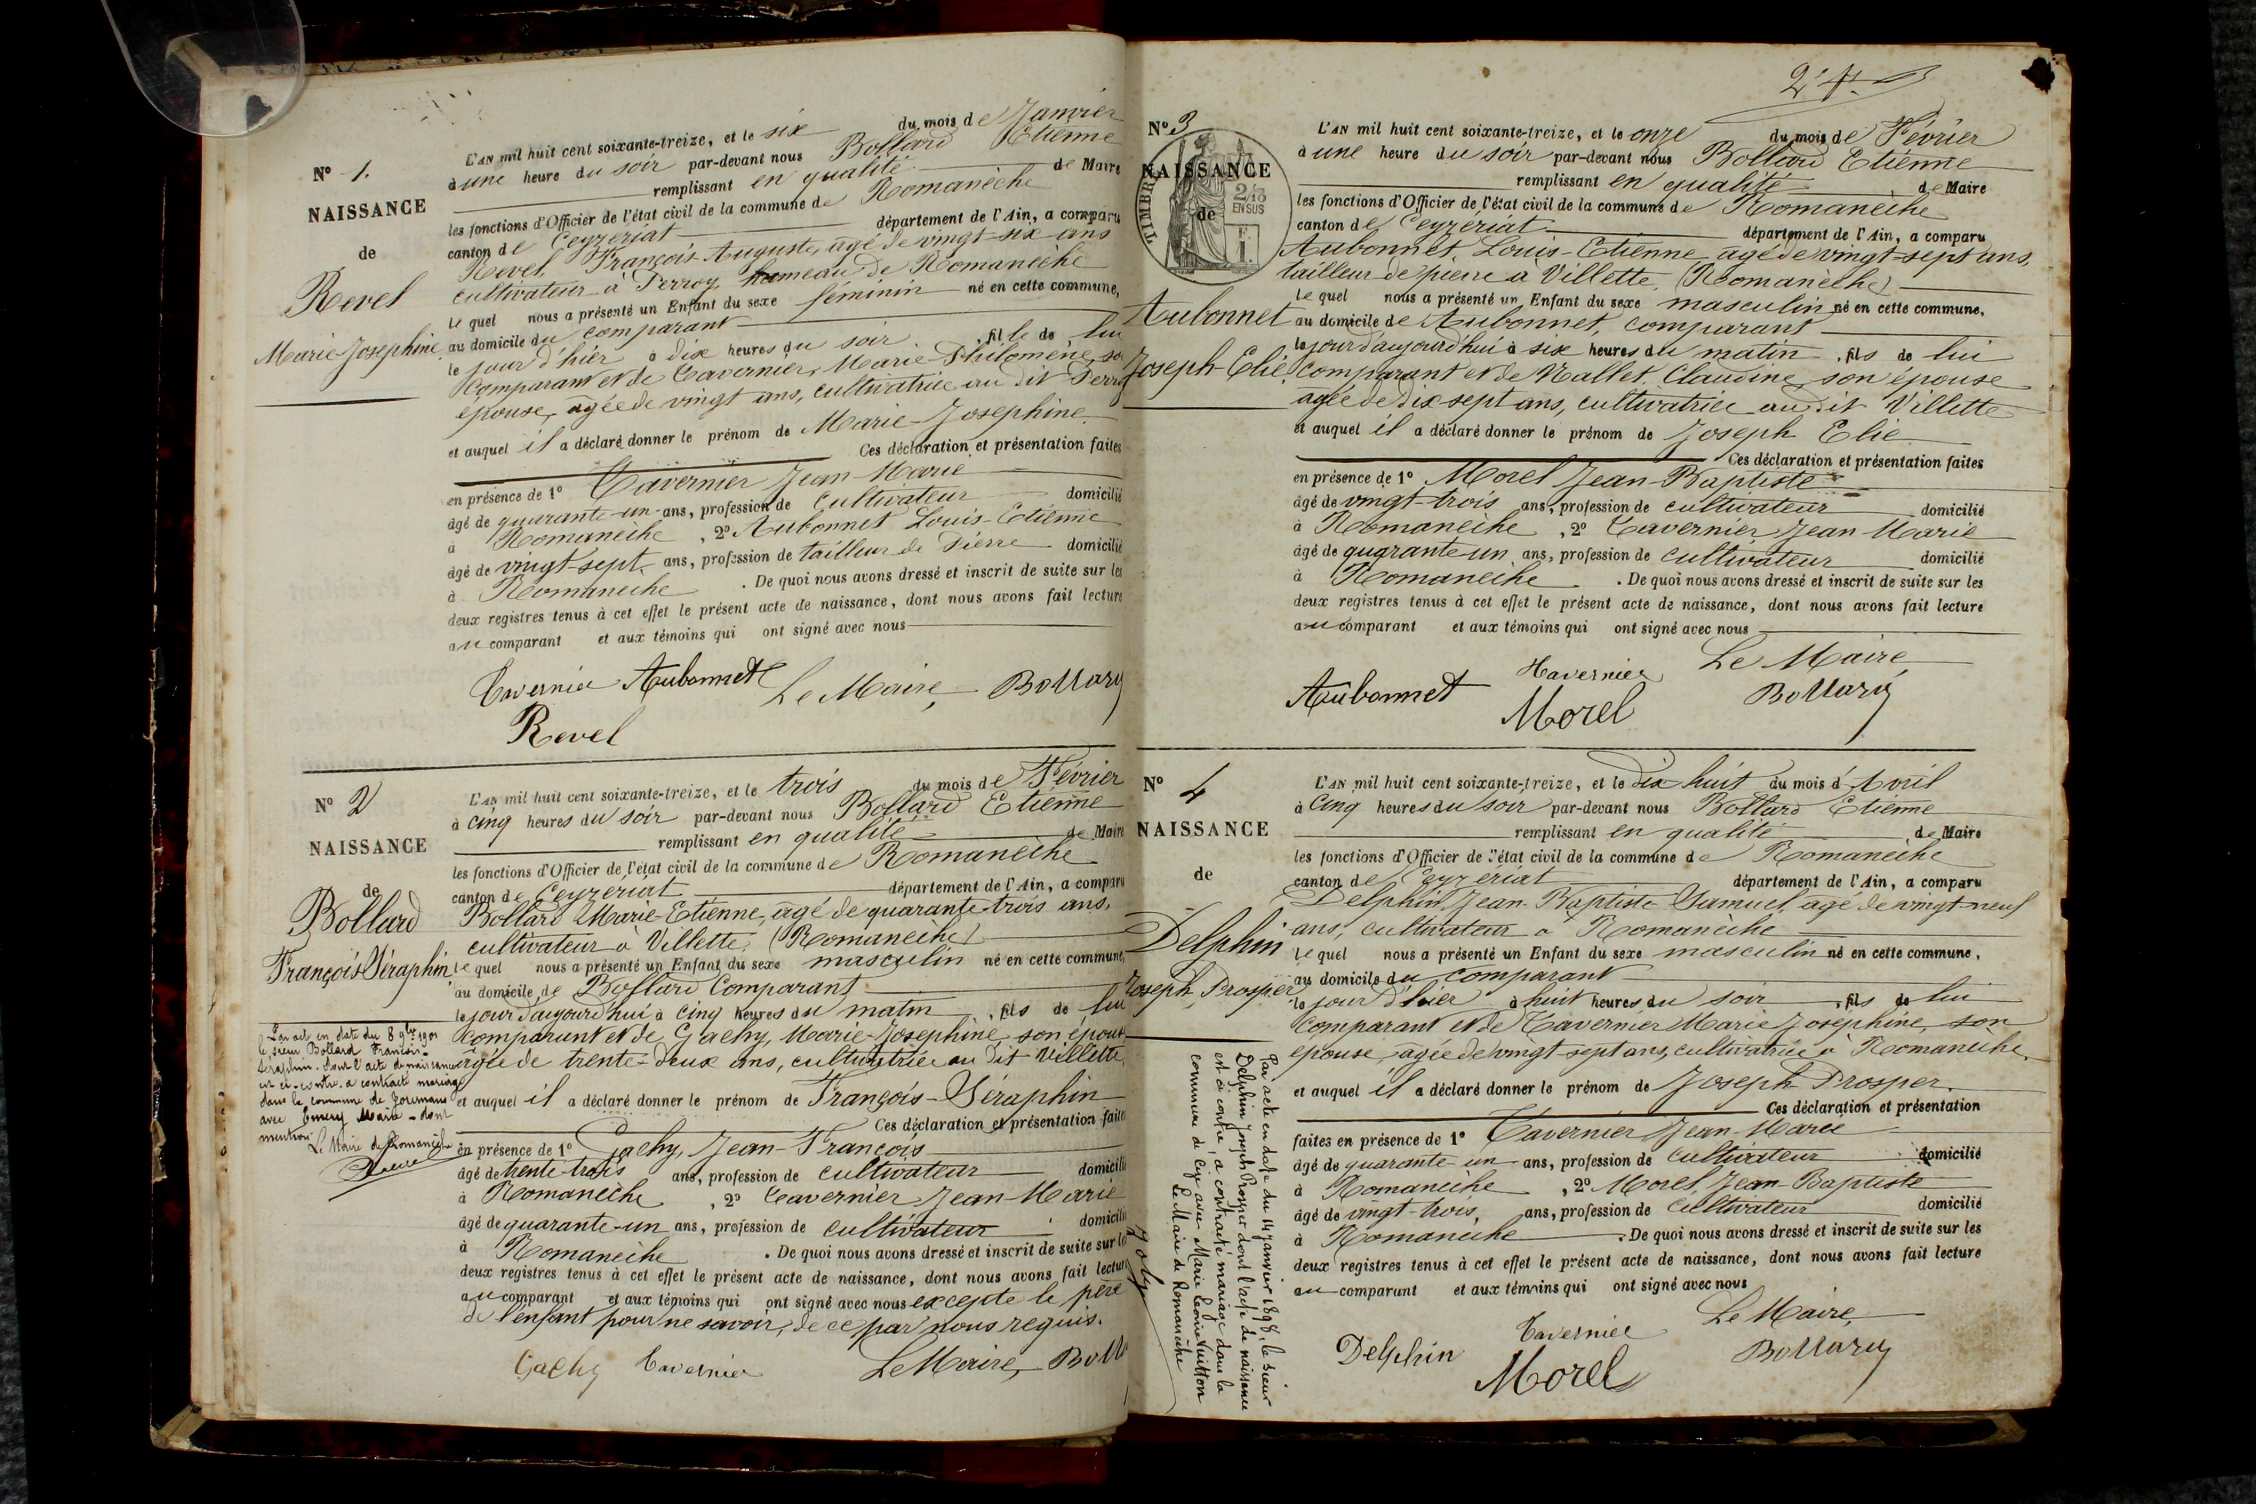 N° 1.
NAISSANCE
de
Revel
Marie Josephine
L'AN mil huit cent soixante-treize, et le six du mois de Janvier
à une heure du soir par-devant nous Bollard Etienne
remplissant en qualité de Maire
les fonctions d'Officier de l'état civil de la commune de Romanèche
canton de Ceyzeriat département de l'Ain, a comparu
Revel, François Auguste, âgé de vingt-six ans
cultivateur à Perroy hameau de Romanèche
Le quel nous a présenté un Enfant du sexe féminin né en cette commune,
au domicile du comparant
le jour d'hier à dix heures du soir, fille de lui
comparant et de Tavernier, Marie-Philomène, son
épouse, âgée de vingt ans, cultivatrice au dit Perroy
et auquel il a déclaré donner le prénom de Marie-Josephine
Ces déclaration et présentation faites
en présence de 1° Tavernier Jean-Marie
âgé de quarante-un ans, profession de cultivateur domicilié
à Romanèche, 2° Aubonnet Louis-Etienne
âgé de vingt-sept ans, profession de tailleur de Pierre domicilié
à Romanèche. De quoi nous avons dressé et inscrit de suite sur les
deux registres tenus à cet effet le présent acte de naissance, dont nous avons fait lecture
au comparant et aux témoins qui ont signé avec nous
Tavernier Aubonnet Le Maire, Bollard
Revel
N° 2
NAISSANCE
de
Bollard
François Séraphin
Par acte en date du 8 9bre 1901
le sieur Bollard François-
Séraphin. dont l'acte de naissance
est ci-contre. a contracté mariage
dans la commune de Journans
avec Emery Marie - dont
mention.
Le Maire de Romanèche
L'AN mil huit cent soixante-treize, et le trois du mois de Février
à cinq heures du soir par-devant nous Bollard Etienne
remplissant en qualité de Maire
les fonctions d'Officier de l'état civil de la commune de Romanèche
canton de Ceyzeriat département de l'Ain, a comparu
Bollard Marie-Etienne, âgé de quarante-trois ans,
cultivateur à Villette, (Romanèche)
Le quel nous a présenté un Enfant du sexe masculin né en cette commune,
au domicile de Bollard Comparant
le jour d'aujourd'hui à cinq heures du matin, fils de lui
comparant et de Gachy, Marie-Josephine, son épouse
âgée de trente-deux ans, cultivatrice au dit Villette,
et auquel il a déclaré donner le prénom de François-Séraphin
Ces déclaration et présentation faites
en présence de 1° Gachy, Jean-François
âgé de trente trois ans, profession de cultivateur domicilié
à Romanèche, 2° Tavernier Jean-Marie
âgé de quarante-un ans, profession de cultivateur domicilié
à Romanèche. De quoi nous avons dressé et inscrit de suite sur les
deux registres tenus à cet effet le présent acte de naissance, dont nous avons fait lecture
au comparant et aux témoins qui ont signé avec nous excepté le père
de l'enfant pour ne savoir, de ce par nous requis.
Gachy Tavernier Le Maire, Boll
N° 3
NAISSANCE
de
TIMBRE
2/10
EN SUS
1 F.
Aubonnet
Joseph-Elie
L'AN mil huit cent soixante-treize, et le onze du mois de Février
à une heure du soir par-devant nous Bollard Etienne
remplissant en qualité de Maire
les fonctions d'Officier de l'état civil de la commune de Romanèche
canton de Ceyzériat département de l'Ain, a comparu
Aubonnet, Louis-Etienne âgé de vingt-sept ans,
tailleur de pierre à Villette, (Romanèche)
Le quel nous a présenté un Enfant du sexe masculin né en cette commune,
au domicile de Aubonnet, comparant
le jour d'aujourd'hui à six heures du matin, fils de lui
comparant et de Nallet, Claudine, son épouse
âgée de dix sept ans, cultivatrice au dit Villette
et auquel il a déclaré donner le prénom de Joseph Elie
Ces déclaration et présentation faites
en présence de 1° Morel Jean-Baptiste
âgé de vingt-trois ans, profession de cultivateur domicilié
à Romanèche, 2° Tavernier Jean Marie
âgé de quarante un ans, profession de cultivateur domicilié
à Romanèche. De quoi nous avons dressé et inscrit de suite sur les
deux registres tenus à cet effet le présent acte de naissance, dont nous avons fait lecture
au comparant et aux témoins qui ont signé avec nous
Aubonnet Tavernier Le Maire,
Morel Bollard
N° 4
NAISSANCE
de
Delphin
Joseph Prosper
Par acte en date du 14 janvier 1898, le sieur
Delphin Joseph Prosper dont l'acte de naissance
est ci-contre, a contracté mariage dans la
commune de avec Marie Leonie Vuitton
Le Maire de Romanèche
Joly
L'AN mil huit cent soixante-treize, et le dix huit du mois d'Avril
à cinq heures du soir par-devant nous Bollard Etienne
remplissant en qualité de Maire
les fonctions d'Officier de l'état civil de la commune de Romanèche
canton de Ceyzériat département de l'Ain, a comparu
Delphin, Jean-Baptiste Samuel, âgé de vingt-neuf
ans, cultivateur à Romanèche
Le quel nous a présenté un Enfant du sexe masculin né en cette commune,
au domicile du comparant
le jour d'hier à huit heures du soir, fils de lui
comparant et de Tavernier Marie Joséphine, son
épouse, âgée de vingt-sept ans, cultivatrice à Romanèche,
et auquel il a déclaré donner le prénom de Joseph Prosper.
Ces déclaration et présentation
faites en présence de 1° Tavernier Jean-Marie
âgé de quarante-un ans, profession de cultivateur domicilié
à Romanèche, 2° Morel Jean-Baptiste
âgé de vingt-trois, ans, profession de cultivateur domicilié
à Romanèche. De quoi nous avons dressé et inscrit de suite sur les
deux registres tenus à cet effet le présent acte de naissance, dont nous avons fait lecture
au comparant et aux témoins qui ont signé avec nous
Delphin Tavernier Le Maire,
Morel Bollard